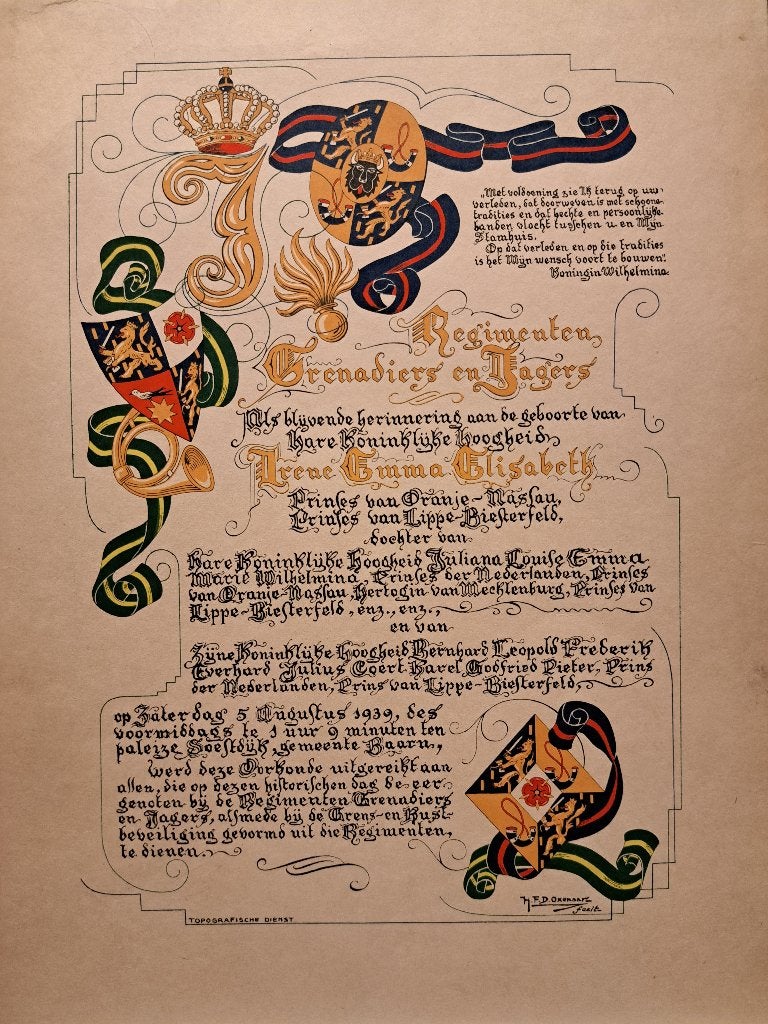 „Met voldoening zie Ik terug op uw
verleden, dat doorweven is met schoone
tradities en dat hechte en persoonlijke
banden vlocht tusschen u en Mijn
Stamhuis.
Op dat verleden en op die tradities
is het Mijn wensch voort te bouwen".
Koningin Wilhelmina
J
Regimenten
Grenadiers en Jagers
Als blijvende herinnering aan de geboorte van
Hare Koninklijke Hoogheid
Irene Emma Elisabeth
Prinses van Oranje-Nassau,
Prinses van Lippe-Biesterfeld,
dochter van
Hare Koninklijke Hoogheid Juliana Louise Emma
Marie Wilhelmina, Prinses der Nederlanden, Prinses
van Oranje-Nassau, Hertogin van Mecklenburg, Prinses van
Lippe-Biesterfeld, enz., enz.,
en van
Zijne Koninklijke Hoogheid Bernhard Leopold Frederik
Everhard Julius Coert Karel Godfried Pieter, Prins
der Nederlanden, Prins van Lippe-Biesterfeld,
op Zaterdag 5 Augustus 1939, des
voormiddags te 1 uur 9 minuten ten
paleize Soestdijk, gemeente Baarn,
werd deze Oorkonde uitgereikt aan
allen, die op dezen historischen dag de eer
genoten bij de Regimenten Grenadiers
en Jagers, alsmede bij de Grens- en Kust-
beveiliging gevormd uit die Regimenten,
te dienen.
TOPOGRAFISCHE DIENST
fecit